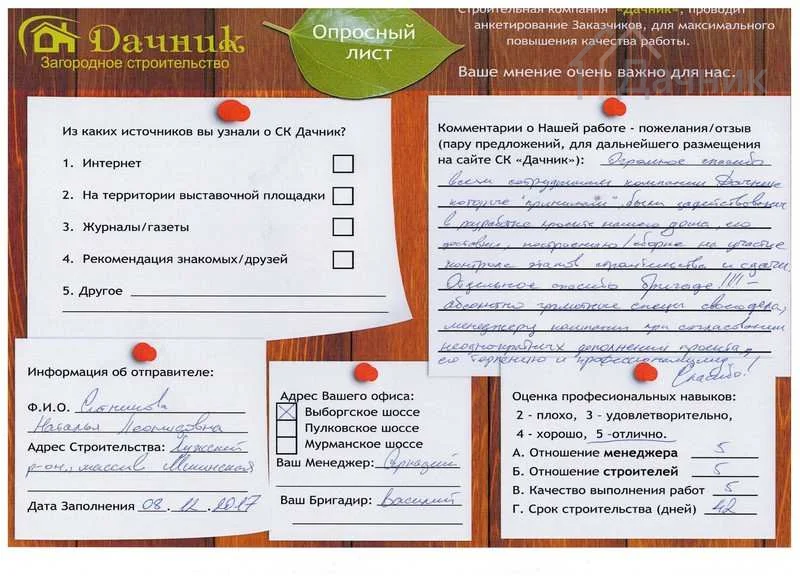 Дачник
Загородное строительство
Опросный
лист
Строительная компания "Дачник", проводит
анкетирование Заказчиков, для максимального
повышения качества работы.
Ваше мнение очень важно для нас.
Дачник
Из каких источников вы узнали о СК Дачник?
1. Интернет
2. На территории выставочной площадки
3. Журналы/газеты
4. Рекомендация знакомых/друзей
5. Другое
Комментарии о Нашей работе - пожелания/отзыв
(пару предложений, для дальнейшего размещения
на сайте СК «Дачник»): Огромное спасибо
всем сотрудникам компании Дачник
которые "принимали" были задействованы
в разработке проекта нашего дома, его
доставки, построению/сборке на участке
контроле этапов строительства и сдачи.
Отдельное спасибо бригаде!!!! -
абсолютно грамотные спецы своего дела,
менеджеру компании при согласовании
неоднократных дополнений проекта,
его терпению и профессионализму
Спасибо!
Информация об отправителе:
Ф.И.О. Ситникова
Наталья Леонидовна
Адрес Строительства: Лужский
р-он, массив Мшинская
Дата Заполнения 08.12.2017
Адрес Вашего офиса:
Выборгское шоссе
Пулковское шоссе
Мурманское шоссе
Ваш Менеджер:
Ваш Бригадир: Василий
Оценка профессиональных навыков:
2 - плохо, 3 - удовлетворительно,
4 - хорошо, 5 -отлично.
А. Отношение менеджера 5
Б. Отношение строителей 5
В. Качество выполнения работ 5
Г. Срок строительства (дней) 42